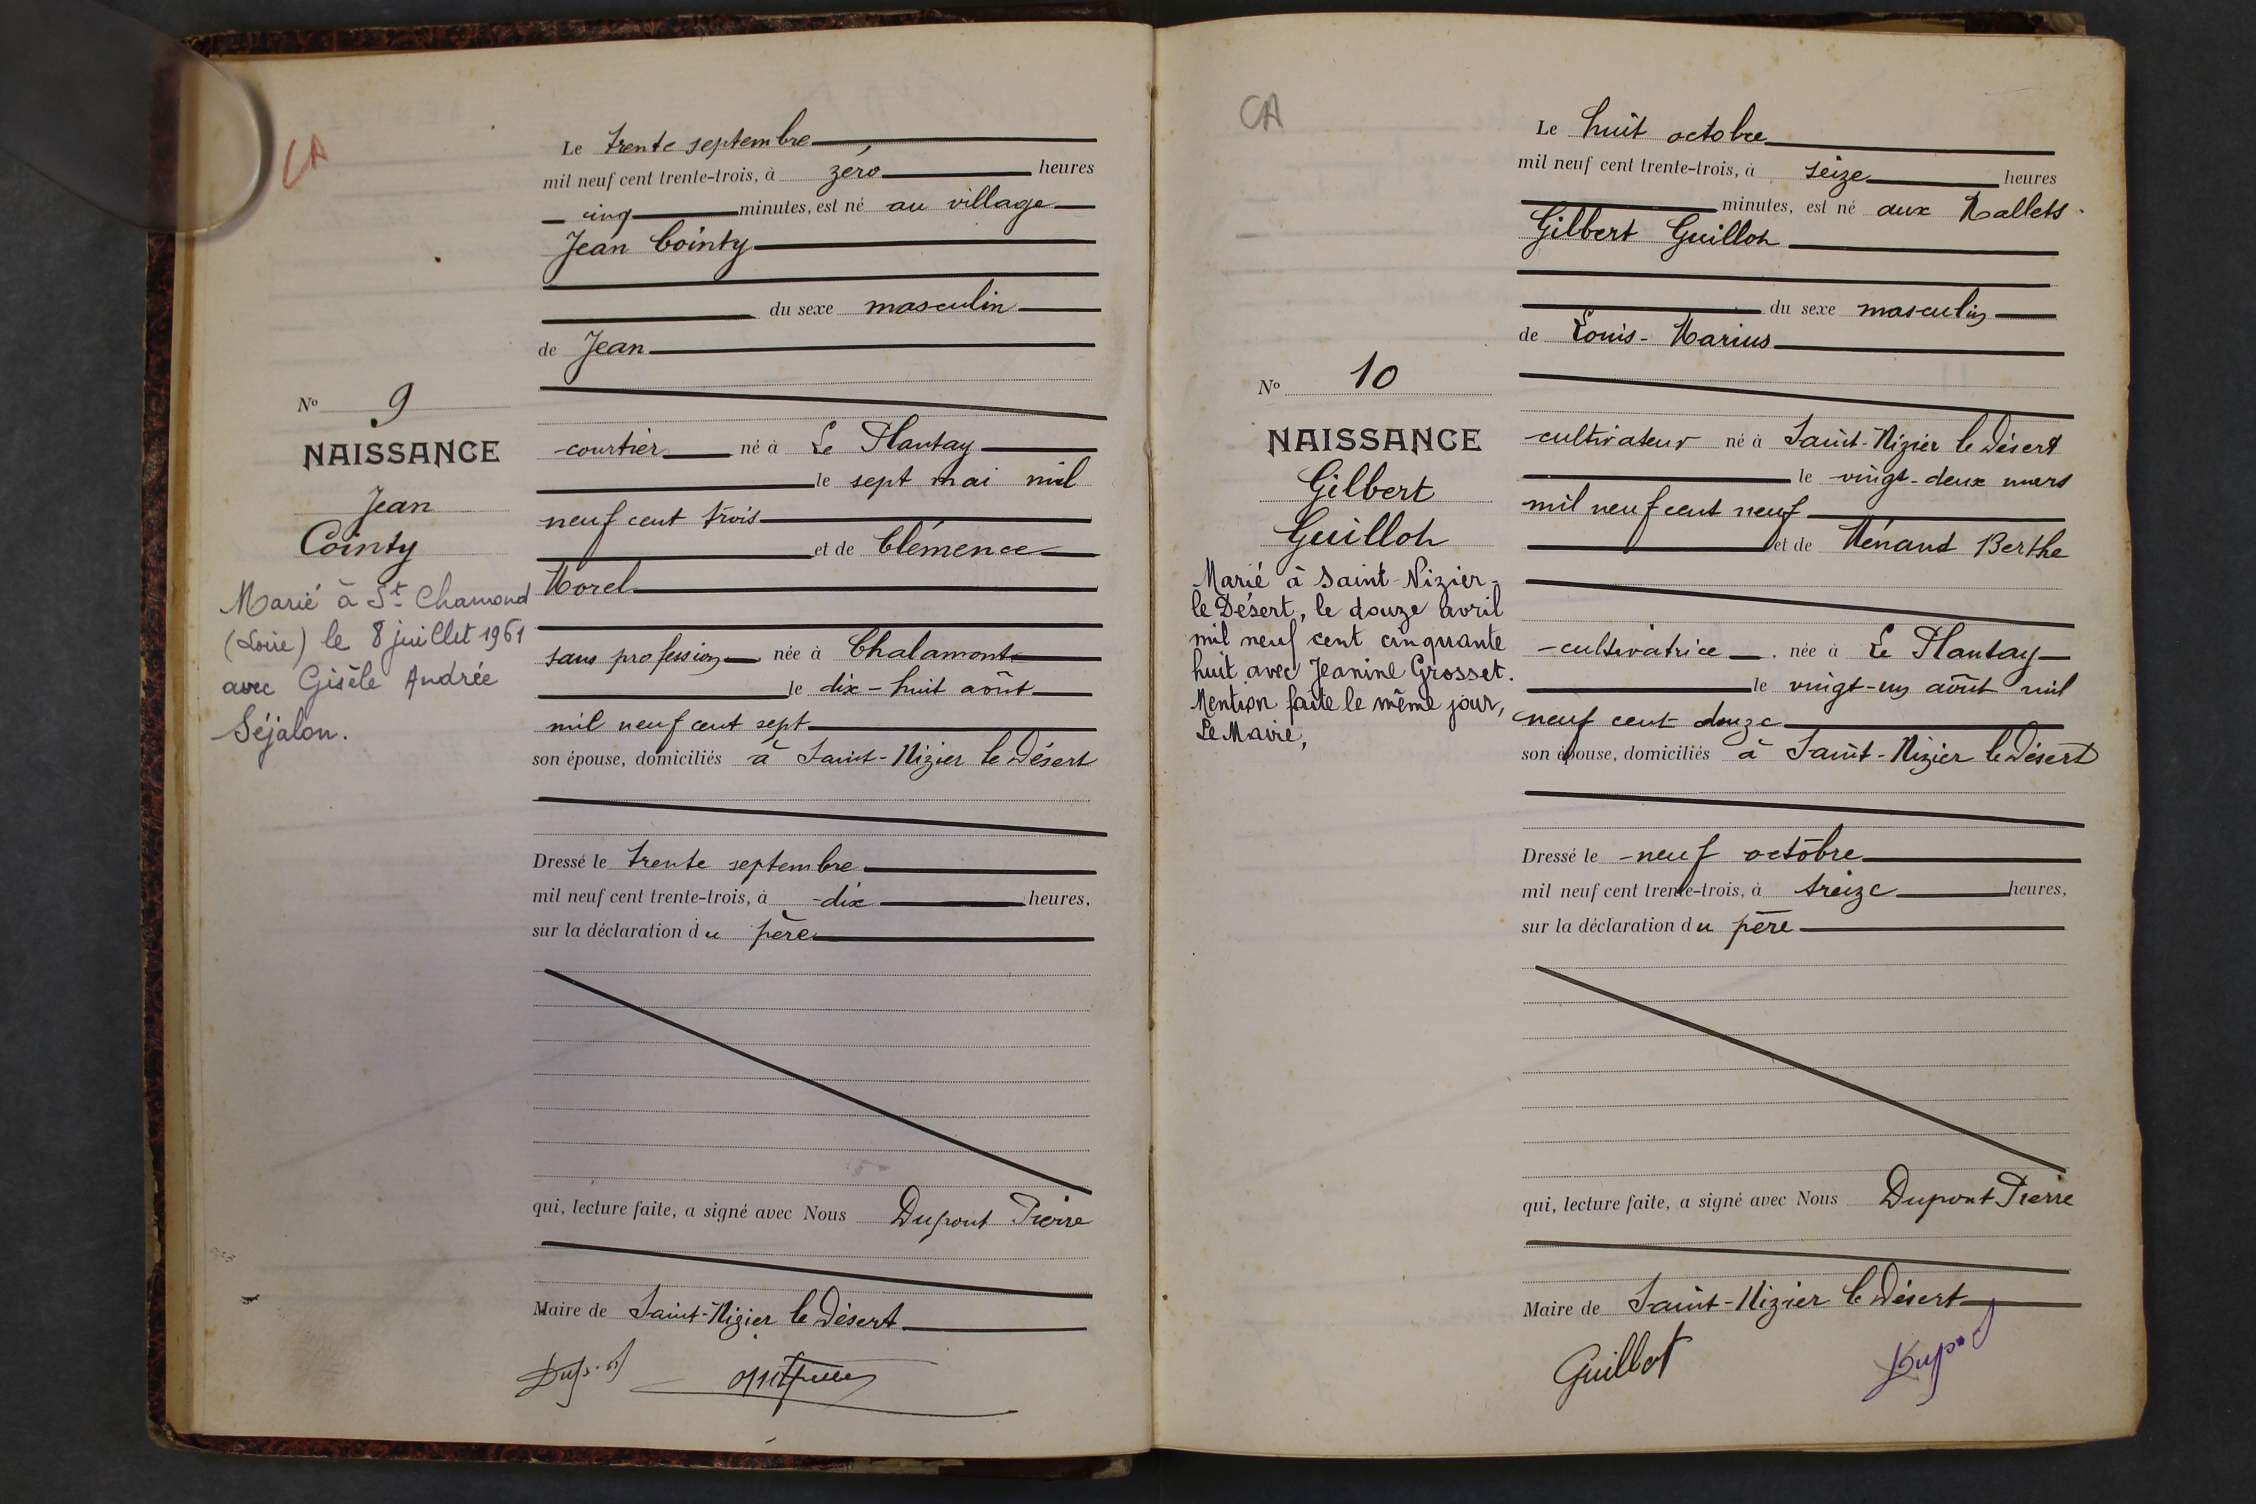 CA
Le trente septembre
mil neuf cent trente-trois, à zéro heures
cinq minutes, est né au village
Jean Cointy
du sexe masculin
de Jean
No 9
NAISSANCE
Jean
Cointy
Marié à St Chamond
(Loire) le 8 juillet 1961
avec Gisèle Andrée
Séjalon.
courtier né à Le Plantay
le sept mai mil
neuf cent trois
et de Clémence
Morel
sans profession née à Chalamont
le dix-huit août
mil neuf cent sept
son épouse, domiciliés à Saint-Nizier le Désert
Dressé le trente septembre
mil neuf cent trente-trois, à dix heures,
sur la déclaration du père
qui, lecture faite, a signé avec Nous Dupont Pierre
Maire de Saint-Nizier le Désert
CA
Le huit octobre
mil neuf cent trente-trois, à seize heures
minutes, est né aux Mallets.
Gilbert Guillot
du sexe masculin
de Louis-Marius
No 10
NAISSANCE
Gilbert
Guillot
Marié à Saint-Nizier-
le Désert, le douze avril
mil neuf cent cinquante
huit avec Jeanine Grosset.
Mention faite le même jour,
Le Maire,
cultivateur né à Saint-Nizier le Désert
le vingt-deux mars
mil neuf cent neuf
et de Ménand Berthe
cultivatrice, née à Le Plantay
le vingt-un août mil
neuf cent douze
son épouse, domiciliés à Saint-Nizier le Désert
Dressé le neuf octobre
mil neuf cent trente-trois, à treize heures,
sur la déclaration du père
qui, lecture faite, a signé avec Nous Dupont Pierre
Maire de Saint-Nizier le Désert
Guillot Dupont